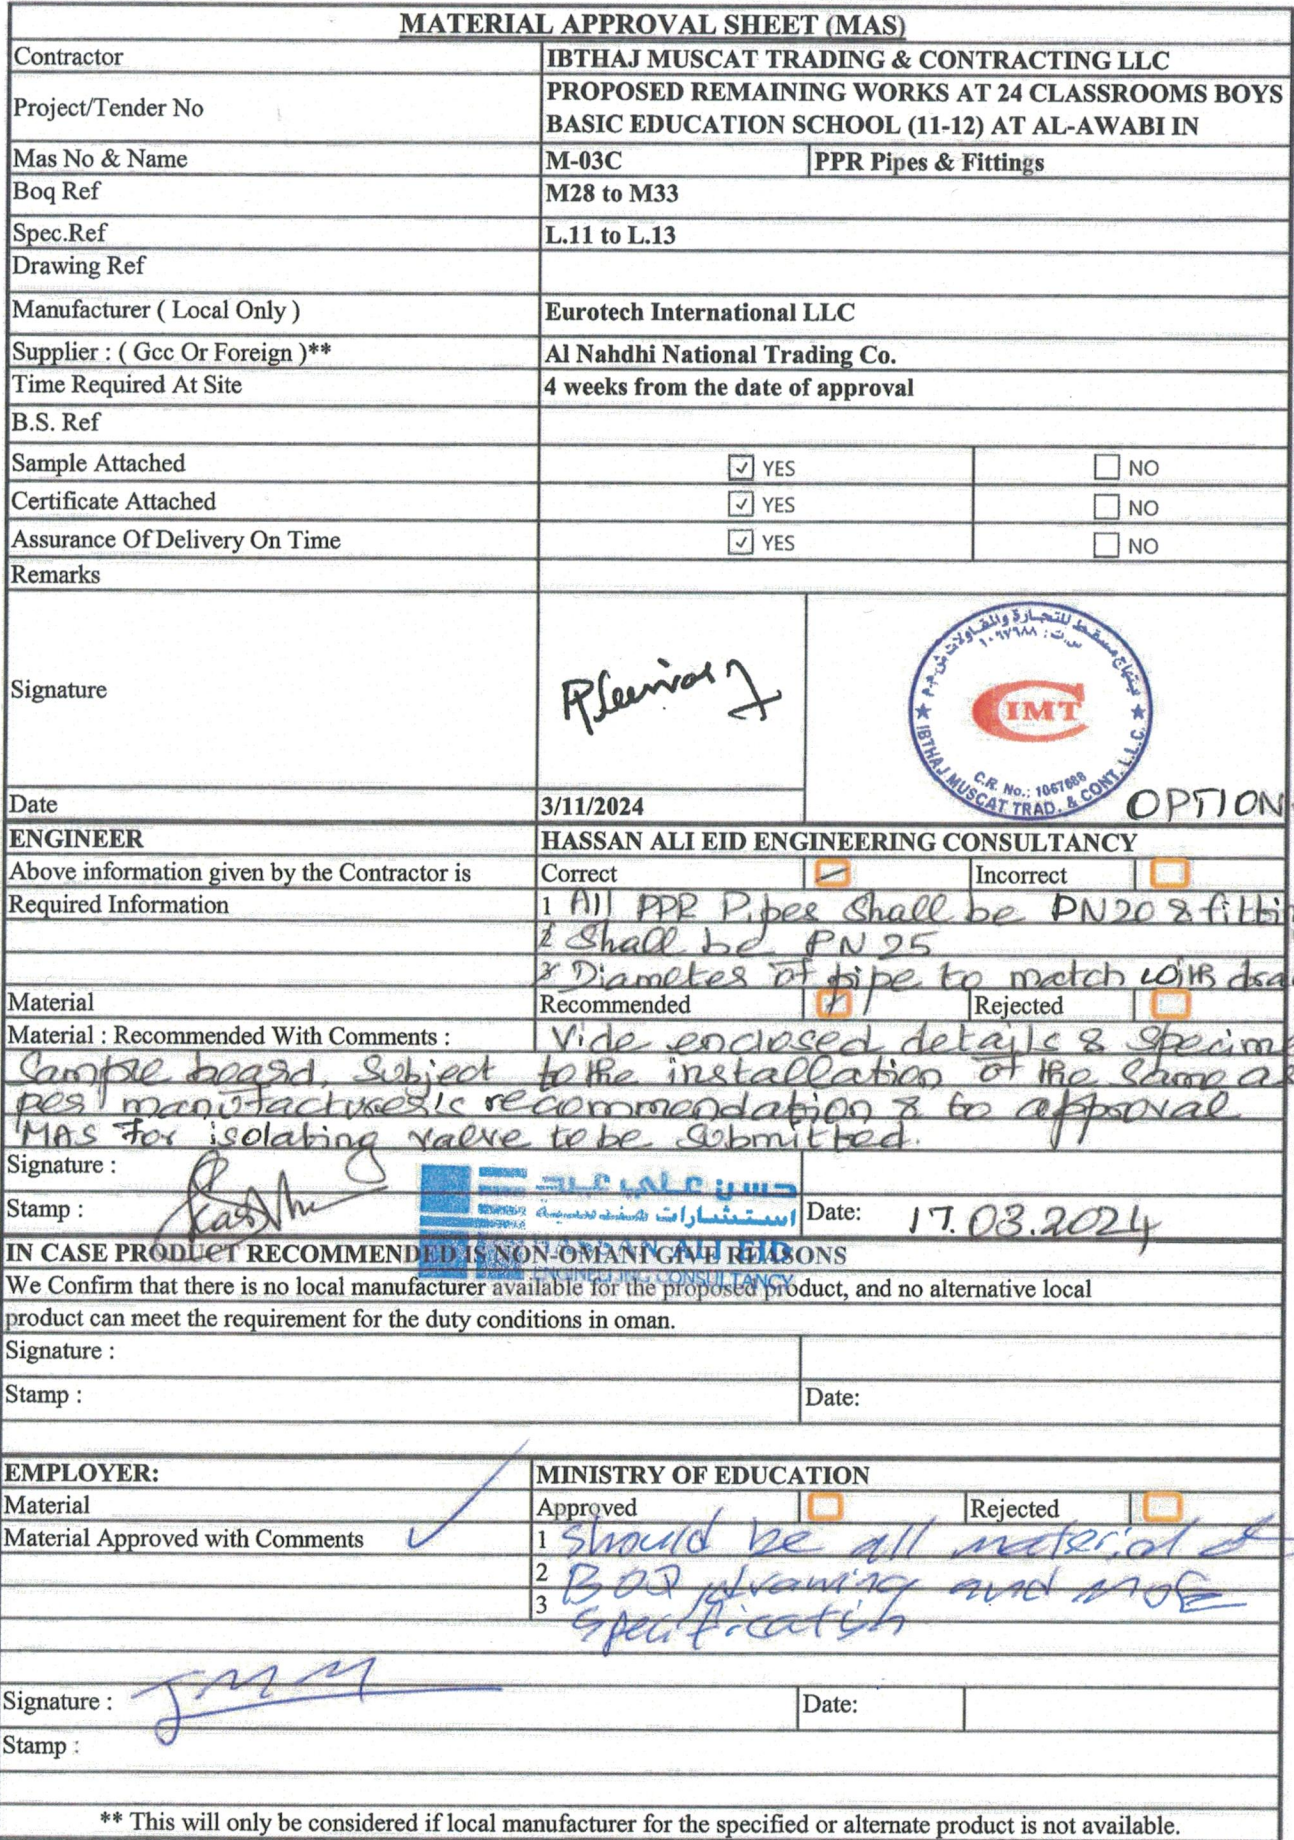 MATERIAL APPROVAL SHEET (MAS)
Contractor IBTHAJ MUSCAT TRADING & CONTRACTING LLC
Project/Tender No PROPOSED REMAINING WORKS AT 24 CLASSROOMS BOYS
BASIC EDUCATION SCHOOL (11-12) AT AL-AWABI IN
Mas No & Name M-03C PPR Pipes & Fittings
Boq Ref M28 to M33
Spec.Ref L.11 to L.13
Drawing Ref
Manufacturer ( Local Only ) Eurotech International LLC
Supplier : ( Gcc Or Foreign )** Al Nahdhi National Trading Co.
Time Required At Site 4 weeks from the date of approval
B.S. Ref
Sample Attached YES NO
Certificate Attached YES NO
Assurance Of Delivery On Time YES NO
Remarks
Signature
ابتهاج مسقط للتجارة والمقاولات ش.م.م
س.ت: ١٠٦٧٦٨٨
IMT
C.R. No.: 1067688
IBTHAJ MUSCAT TRAD. & CONT. L.L.C.
OPTION
Date 3/11/2024
ENGINEER HASSAN ALI EID ENGINEERING CONSULTANCY
Above information given by the Contractor is Correct Incorrect
Required Information 1 All PPR Pipes Shall be PN20 & fittin
2 Shall be PN 25
3 Diameter of pipe to match with dra
Material Recommended Rejected
Material : Recommended With Comments : Vide enclosed details & Specime
Sample board, Subject to the installation of the same as
per manufacturer's recommendation & to approval
MAS For isolating valve to be Submitted.
Signature :
حسن علي عيد
استشارات هندسية
Stamp : Date: 17.03.2024
HASSAN ALI EID
ENGINEERING CONSULTANCY
IN CASE PRODUCT RECOMMENDED IS NON-OMANI GIVE REASONS
We Confirm that there is no local manufacturer available for the proposed product, and no alternative local
product can meet the requirement for the duty conditions in oman.
Signature :
Stamp : Date:
EMPLOYER: MINISTRY OF EDUCATION
Material Approved Rejected
Material Approved with Comments 1 Should be all material
2 BOQ drawing and MOE
3 Specification
Signature : Date:
Stamp :
** This will only be considered if local manufacturer for the specified or alternate product is not available.